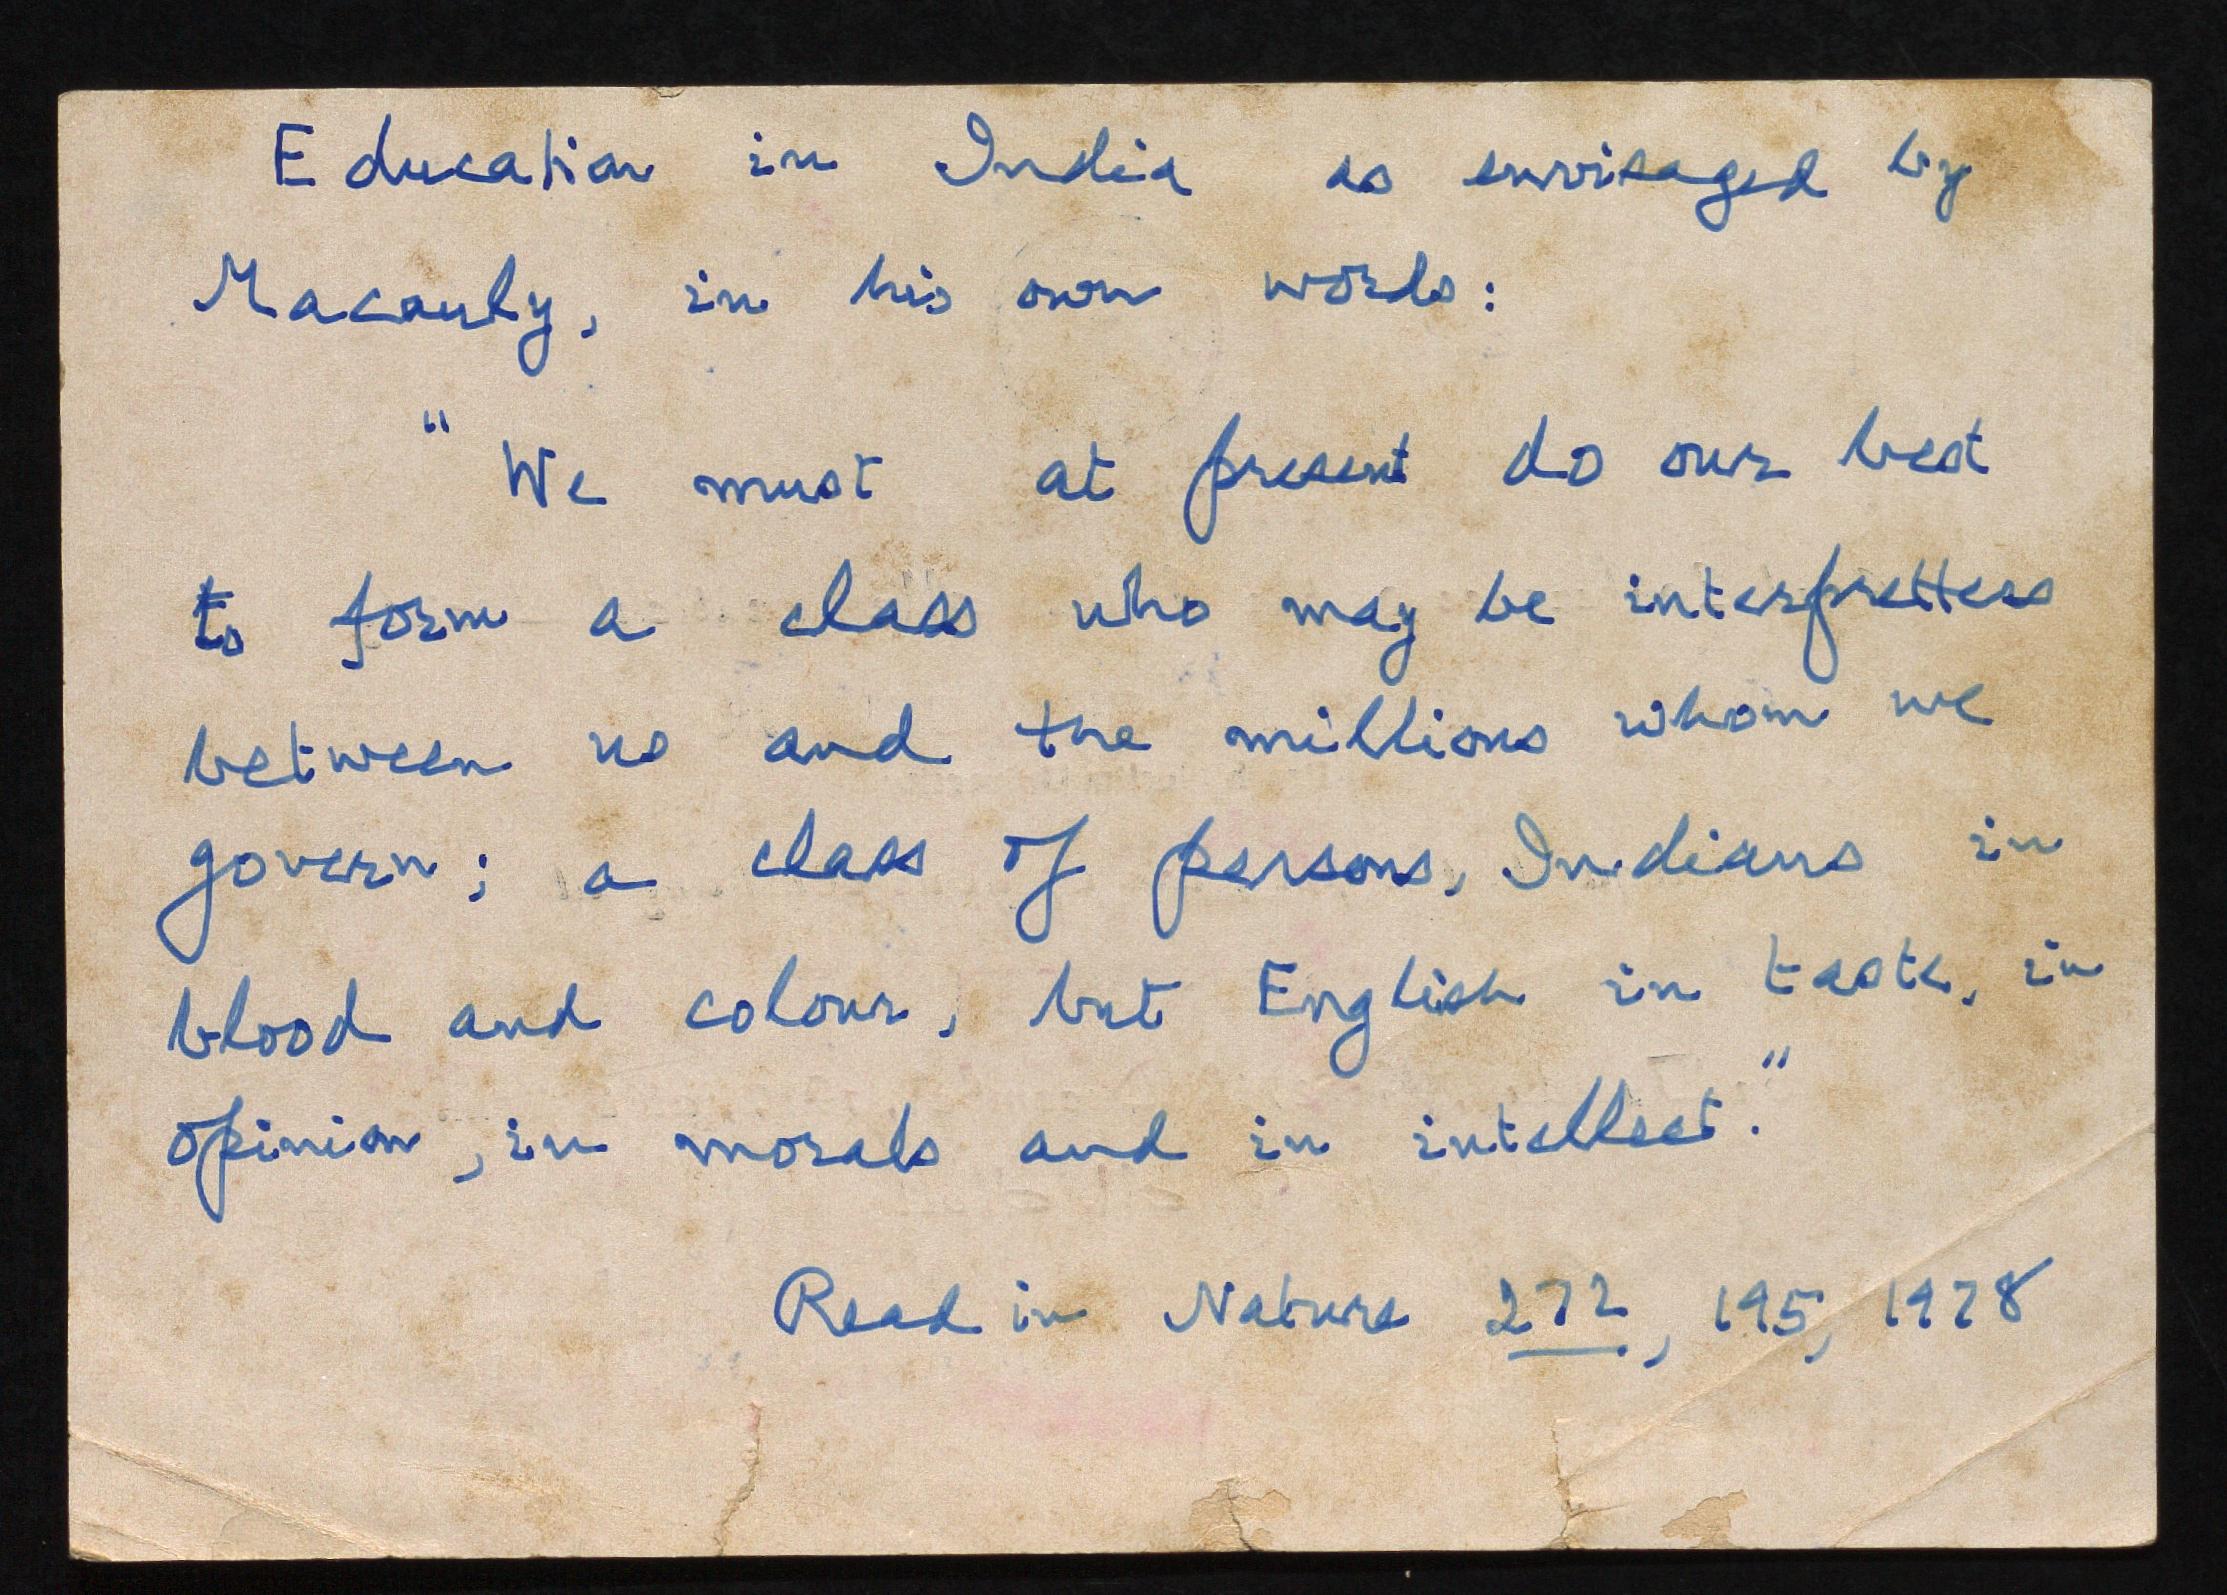 Education in India as envisaged by
Macauly, in his own words:
"We must at present do our best
to form a class who may be interpretters
between us and the millions whom we
govern; a class of persons, Indians in
blood and colour, but English in taste, in
opinion, in morals and in intellect."
Read in Nature 272, 195, 1978